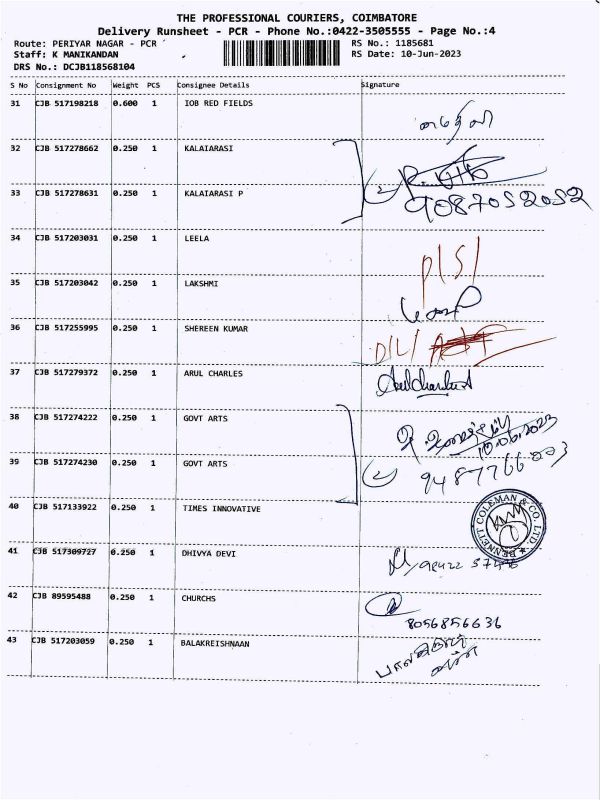 THE PROFESSIONAL COURIERS, COIMBATORE
Delivery Runsheet - PCR - Phone No.:0422-3505555 - Page No.:4
Route: PERIYAR NAGAR - PCR RS No.: 1185681
Staff: K MANIKANDAN RS Date: 10-Jun-2023
DRS No.: DCJB118568104
S No Consignment No Weight PCS Consignee Details Signature
31 CJB 517198218 0.600 1 IOB RED FIELDS
32 CJB 517278662 0.250 1 KALAIARASI
33 CJB 517278631 0.250 1 KALAIARASI P 9087052052
34 CJB 517203031 0.250 1 LEELA
35 CJB 517203042 0.250 1 LAKSHMI
36 CJB 517255995 0.250 1 SHEREEN KUMAR
37 CJB 517279372 0.250 1 ARUL CHARLES
38 CJB 517274222 0.250 1 GOVT ARTS 10.06.2023
39 CJB 517274230 0.250 1 GOVT ARTS
40 CJB 517133922 0.250 1 TIMES INNOVATIVE BENNETT COLEMAN & CO. LTD.
41 CJB 517309727 0.250 1 DHIVYA DEVI
42 CJB 89595488 0.250 1 CHURCHS 8056856636
43 CJB 517203059 0.250 1 BALAKREISHNAAN